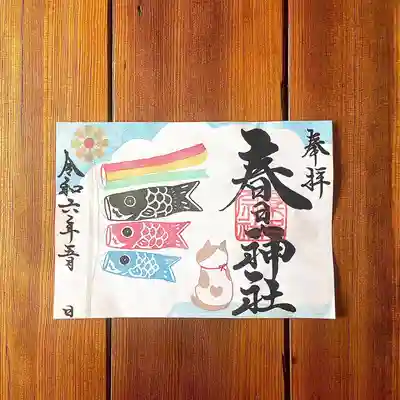 奉拝
春日神社
令和六年五月 日